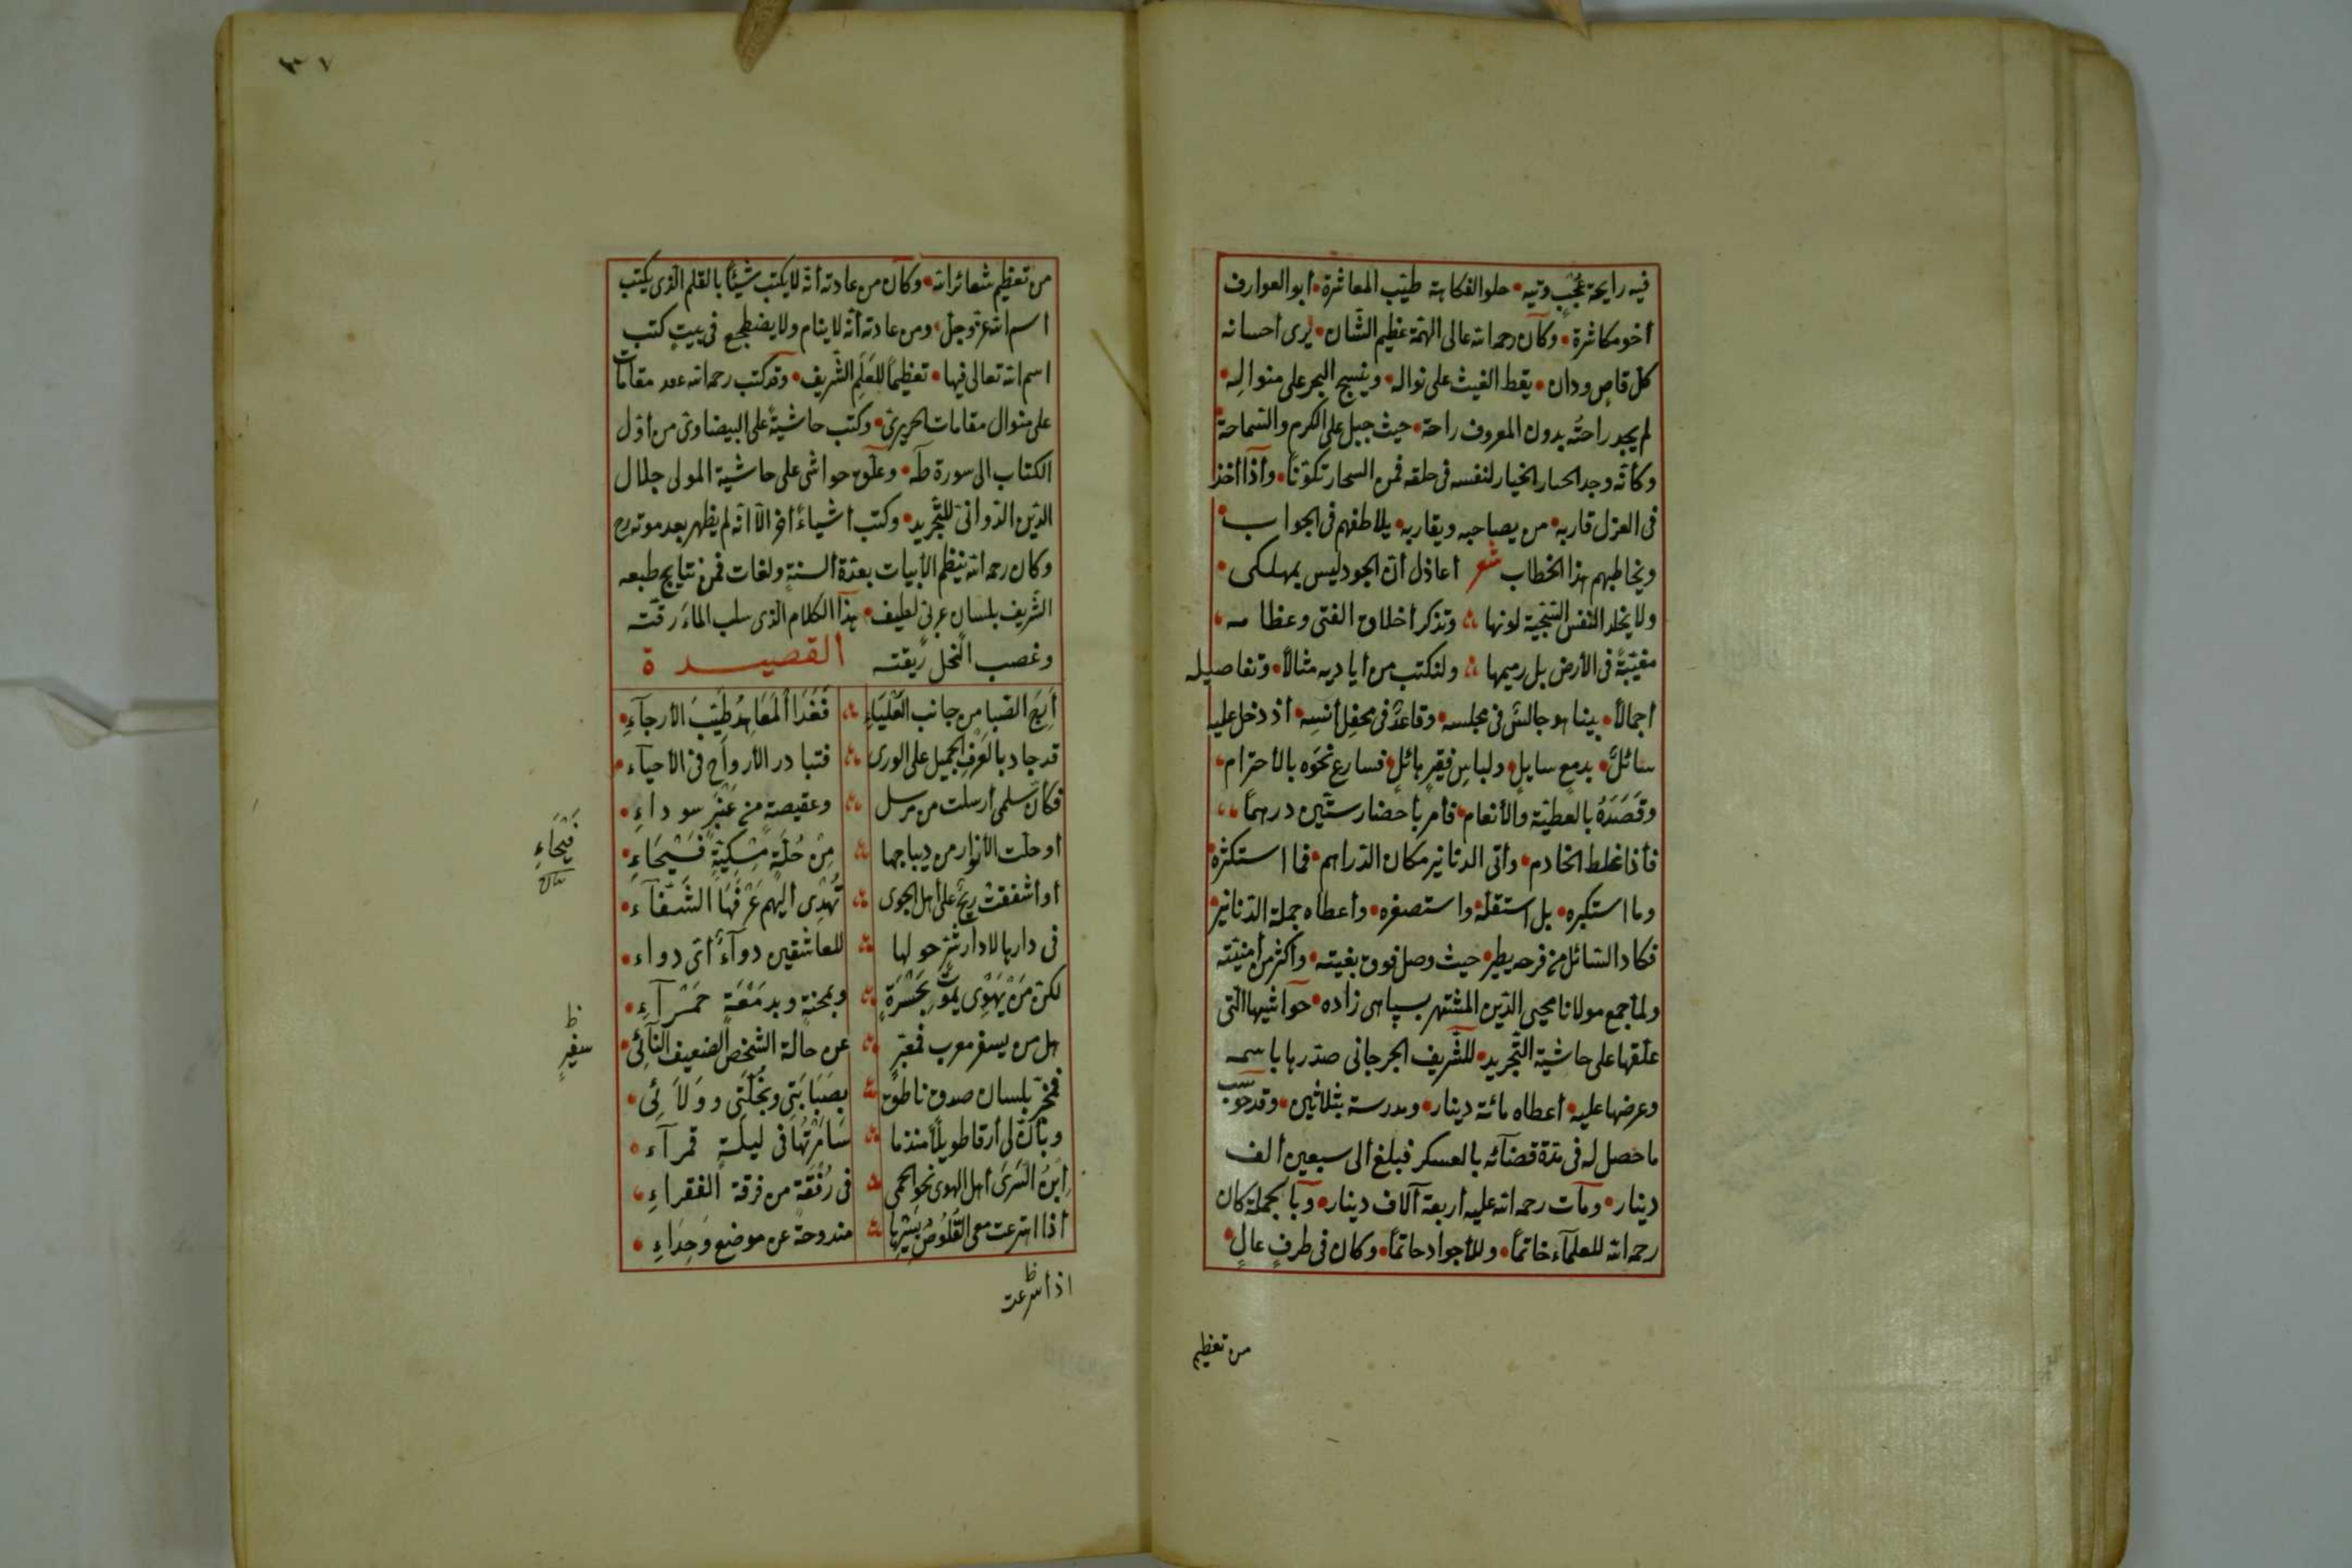 فيه رايحة عجب وتيه • حلو الفكاهة طيب المعاشرة • أبو العوارف
أخو مكاشرة • وكان رحمه الله عالى الهمة عظيم الشان • يرى احسانه
كل قاص ودان • يقط الغيث على نواله • وينسج البحر على منواله •
لم يجد راحته بدون المعروف راحة • حيث جبل على الكرم والسماحة •
وكأنه وجد الخيار لنفسه فى خلقه فمن السحار تكونا • وأذا أخذ
فى الهزل قاربه • من يصاحبه ويقاربه • يلاطفهم فى الجواب •
ويخاطبهم بهذا الخطاب شعر أعاذل أن الجود ليس بمهلكى •
ولا يخلد النفس الشحيحة لونها وتذكر أخلاق الفتى وعظامه
مغيبة فى الأرض بل رميمها ولنكتب من أياديه مثالاً • وتفاصيله
اجمالاً • بينا هو جالس فى مجلسه • وقاعد فى محفل أنسه • أذ دخل عليه
سائل • بدمع سايل • ولباس فقير هائل • فسارع نحوه بالأحترام •
وقصده بالعطية والأنعام • فأمر بأحضار ستين درهما
فأذا غلط الخادم • وأتى الدنانير مكان الدراهم • فما استكثره •
وما استكبره • بل استقله • واستصغره • وأعطاه جملة الدنانير •
فكاد السائل من فرحه يطير • حيث وصل فوق بغيته • وأكثر من أمنيته
ولما جمع مولانا محيى الدين المشتهر بسپاهى زاده • حواشيها التى
علقها على حاشية التجريد • للشريف الجرجانى صدرها باسمه
وعرضها عليه • أعطاه مائة دينار • ومدرسة بثلاثين • وقد حوسب
ما حصل له فى مدة قضآئه بالعسكر فبلغ ألى سبعين ألف
دينار • ومات رحمه الله عليه أربعة آلاف دينار • وبالجملة كان
رحمه الله للعلمآء خاتماً • وللأجواد حاتماً • وكان فى طرف عال •
من تعظيم
٣٧
من تعظيم شعائر الله • وكان من عادته أنه لا يكتب شيئاً بالقلم الذى يكتب
اسم الله عز وجل • ومن عادته أنه لا ينام ولا يضطجع فى بيت كتب
اسم الله تعالى فيها • تعظيماً للعلم الشريف • وقد كتب رحمه الله عدد مقامات
على منوال مقامات الحريرى • وكتب حاشية على البيضاوى من أول
الكتاب الى سورة طه • وعلق حواشى على حاشية المولى جلال
الدين الدوانى للتجريد • وكتب أشياء أخر الآ انه لم يظهر بعد موته رح
وكان رحمه الله ينظم الأبيات بعدة ألسنة ولغات فمن نتايج طبعه
الشريف بلسان عربى لطيف • هذا الكلام الذى سلب الماء رقته
وغصب النحل ريقته القصيدة
أريج الصبا من جانب العلياء فغدا المعاهد طيب الأرجآء •
قد جاد بالعرف الجميل على الورى فتبادر الأرواح فى الأحيآء •
فكأن سلمى أرسلت من مرسل وعقيصة من عنبر سوداء •
أو حلت الأزرار من ديباجها من حلة مسكية فسيحاء •
فيحاء
أو أشفقت ريح على أهل الجوى تهدى أليهم عرفها الشفآء •
فى دارها لا دار شر حولها للعاشقين دوآء أى دواء •
لكن من يهوى يموت بحسرة وبمحنة وبدمعة حمرآء •
هل من يسفر معرب فمعبر عن حالة الشخص الضعيف النآئى •
سفير ظ
فمخبر بلسان صدق ناطق بصبابتى وبخلتى وولآئى •
وبأن لى أرقا طويلاً منذ ما سامرتها فى ليلة قمرآء •
أين السرى أهل الهوى نحو الحمى فى رفقة من فرقة الفقراء
أذا اهترعت معى القلوص بسيرها مندوحة عن موضع وحداء •
اذا سرعت ظ